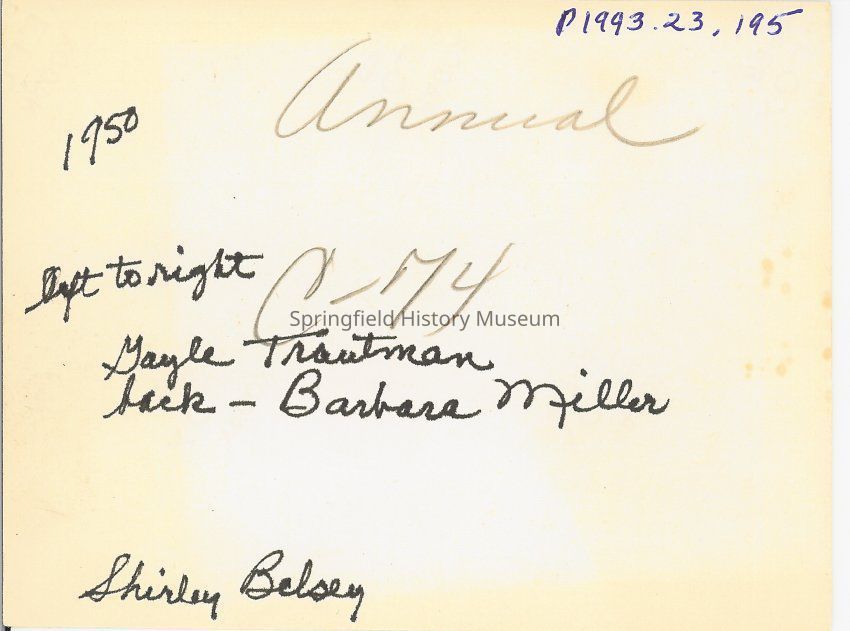 P1993.23.195
Annual
1950
left to right
C-74
Springfield History Museum
Gayle Trautman
back - Barbara Miller
Shirley Belsey